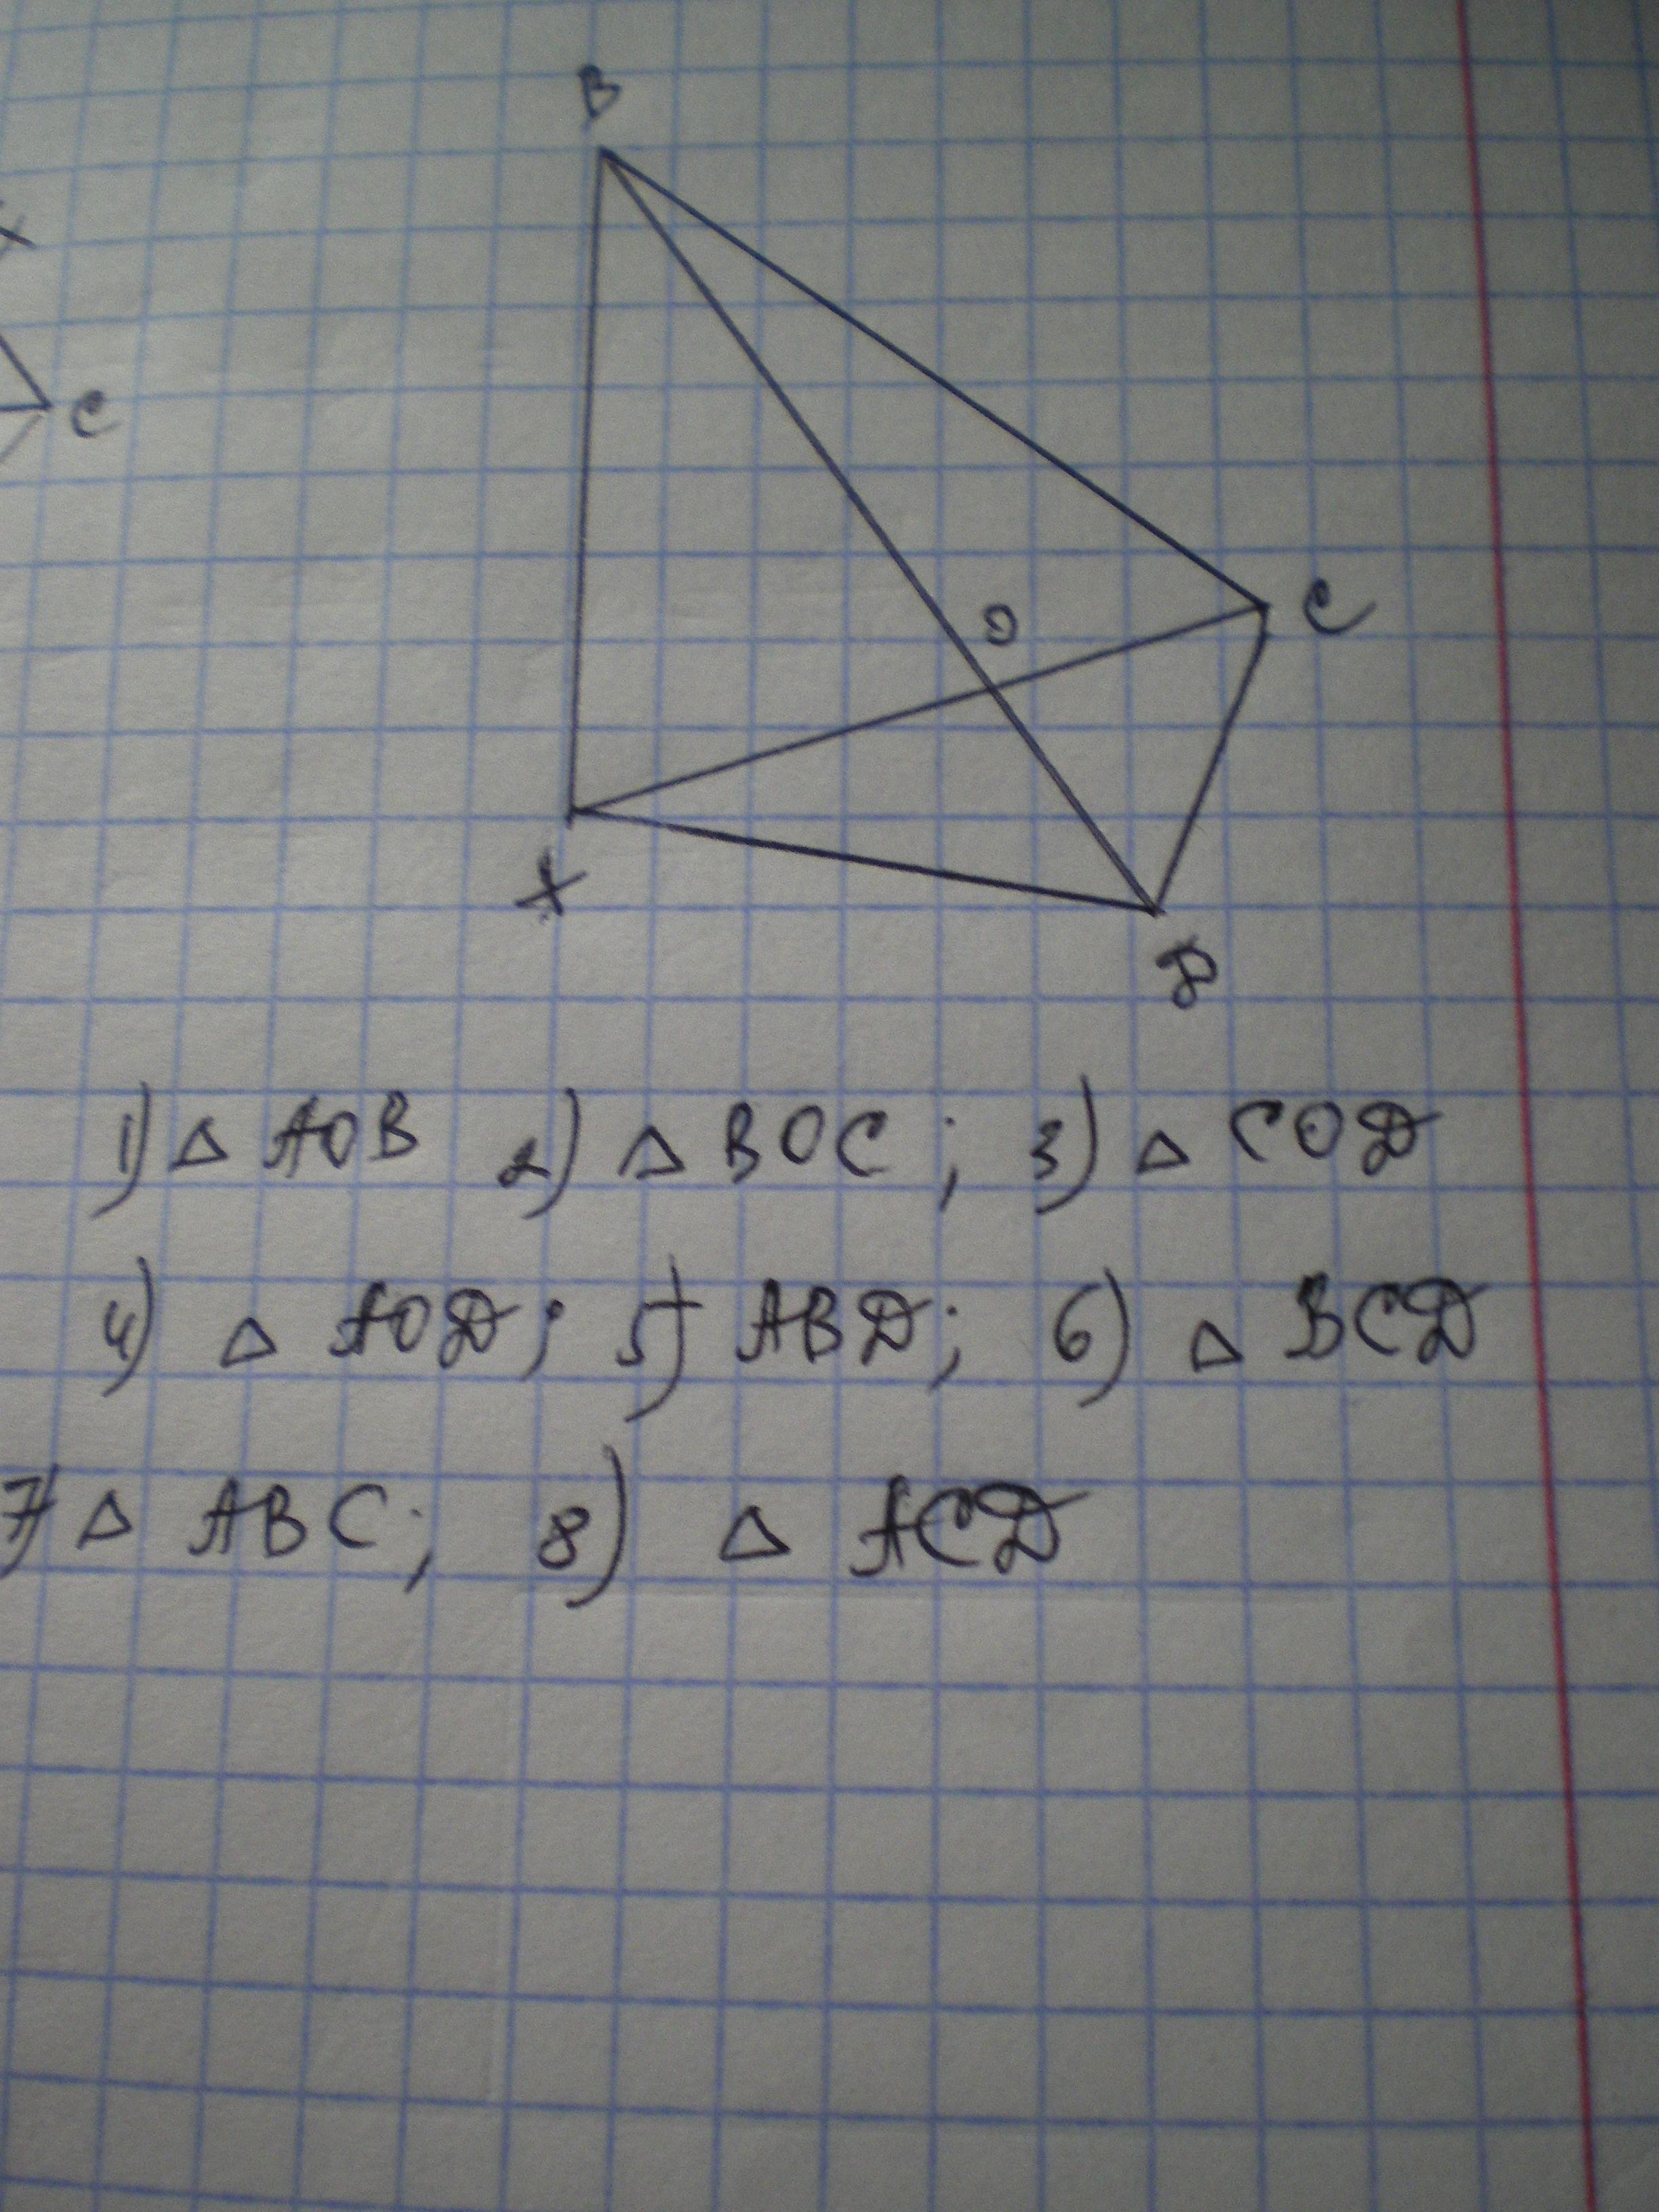 B
C
O
C
A
D
1) △ AOB 2) △ BOC ; 3) △ COD
4) △ AOD ; 5) ABD ; 6) △ BCD
7) △ ABC ; 8) △ ACD